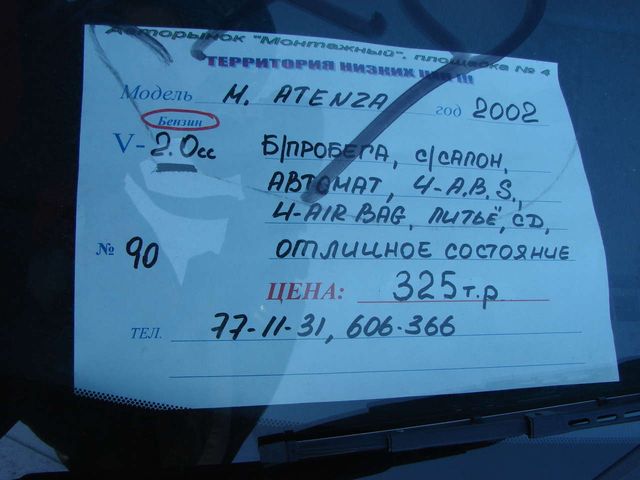 Авторынок "Монтажный", площадка № 4
ТЕРРИТОРИЯ НИЗКИХ ЦЕН !!!
Модель M. ATENZA год 2002
Бензин
V- 2.0cc Б/ПРОБЕГА, С/САЛОН,
АВТОМАТ, 4-A.B.S.,
4-AIR BAG, ЛИТЬЁ, CD,
№ 90 ОТЛИЦНОЕ СОСТОЯНИЕ
ЦЕНА: 325 т.р
ТЕЛ. 77-11-31, 606-366